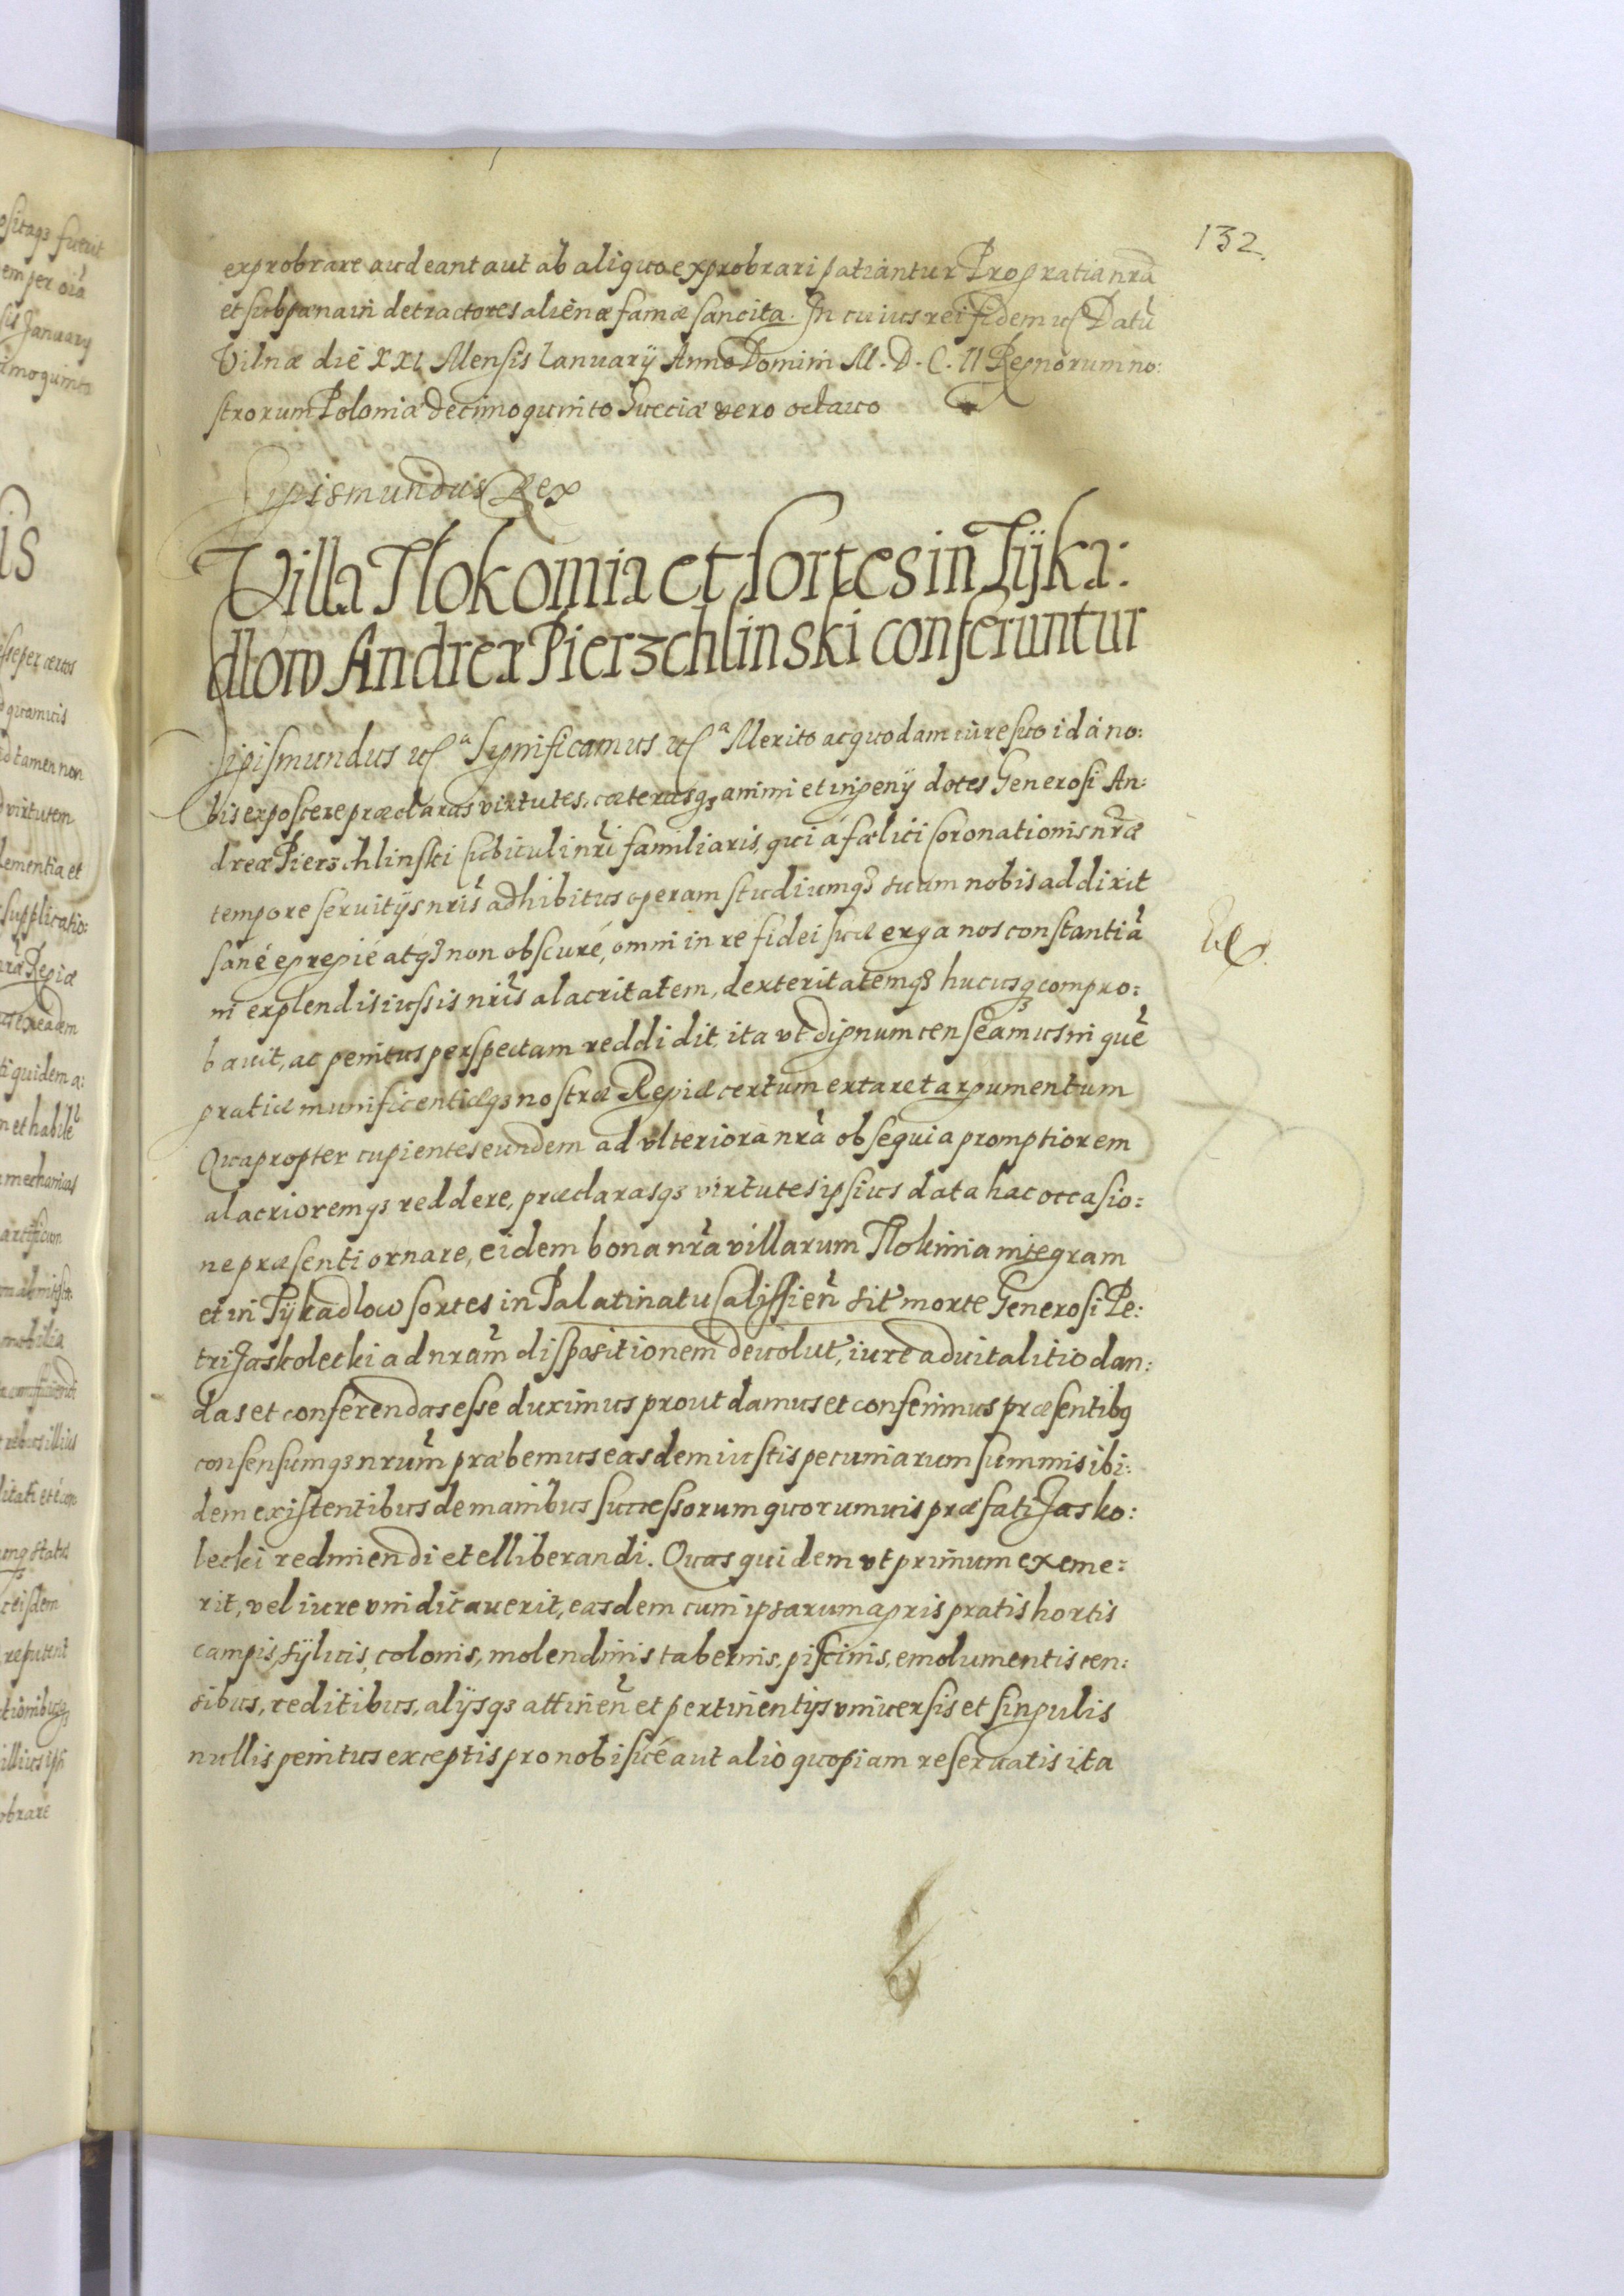 132.
exprobrare audeant aut ab aliquo exprobrari patiantur Pro gratia nr̃a
et sub pœna in detractores alienæ famæ sancita. In cuius rei fidem ꝛc Datũ
Vilnæ die XXI Mensis Ianuarÿ Anno Domini M. D. C. II Regnorum no:
strorum Poloniæ decimoquinto Sueciæ vero octauo
Sigismundus Rex
Villa Tlokomia et sortes in Tÿka:
dlow Andreæ Pierzchlinski conferuntur
Sigismundus ꝛcª Significamus ꝛcª Merito ac quodam iure suo id à no:
bis exposcere præclaras virtutes, cæterasqꝫ animi et ingenÿ dotes Generosi An:
dreæ Pierzchlinski Cubiculi nr̃i familiaris, qui à fœlici Coronationis nr̃æ
tempore seruitÿs nr̃is adhibitus operam studiumqꝫ suum nobis addixit
sanè egregiè atqꝫ non obscurè, omni in re fidei suæ erga nos constantiã
in explendis iussis nr̃is alacritatem, dexteritatemqꝫ hucusqꝫ compro:
bauit, ac penitus perspectam reddidit, ita vt dignum censeamus in quẽ
gratiæ munificentiæqꝫ nostræ Regiæ certum extaret argumentum
Quapropter cupientes eundem ad vlteriora nr̃a obsequia promptiorem
alacrioremqꝫ reddere, præclarasqꝫ virtutes ipsius data hac occasio:
ne præsenti ornare, eidem bona nr̃a villarum Tlokinia integram
et in Tÿkadlow sortes in Palatinatu Calissien̄ sit̃ morte Generosi Pe:
tri Jaskolecki ad nr̃am dispositionem deuolut̃, iure aduitalitio dan:
das et conferendas esse duximus prout damus et conferimus præsentibꝯ
consensumqꝫ nr̃um præbemus easdem iustis pecuniarum summis ibi:
dem existentibus de manibus successorum quorumuis præfati Jasko:
lecki redimendi et elliberandi. Quas quidem vt primum exeme:
rit, vel iure vindicauerit, easdem cum ipsarum agris pratis hortis
campis, sÿluis, colonis, molendinis tabernis, piscinis, emolumentis cen:
sibus, reditibus, alÿsqꝫ attinen̄ et pertinentÿs vniuersis et singulis
nullis penitus exceptis pro nobisuè aut alio quopiam reseruatis ita